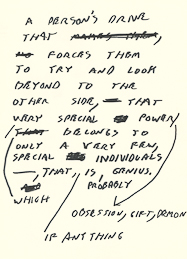 A PERSON'S DRIVE
THAT
FORCES THEM
TO TRY AND LOOK
BEYOND TO THE
OTHER SIDE, THAT
VERY SPECIAL POWER
THAT BELONGS TO
ONLY A VERY FEW,
SPECIAL INDIVIDUALS
, THAT, IS GENIUS.
PROBABLY
WHICH
OBSESSION, GIFT, DEMON
IF ANYTHING